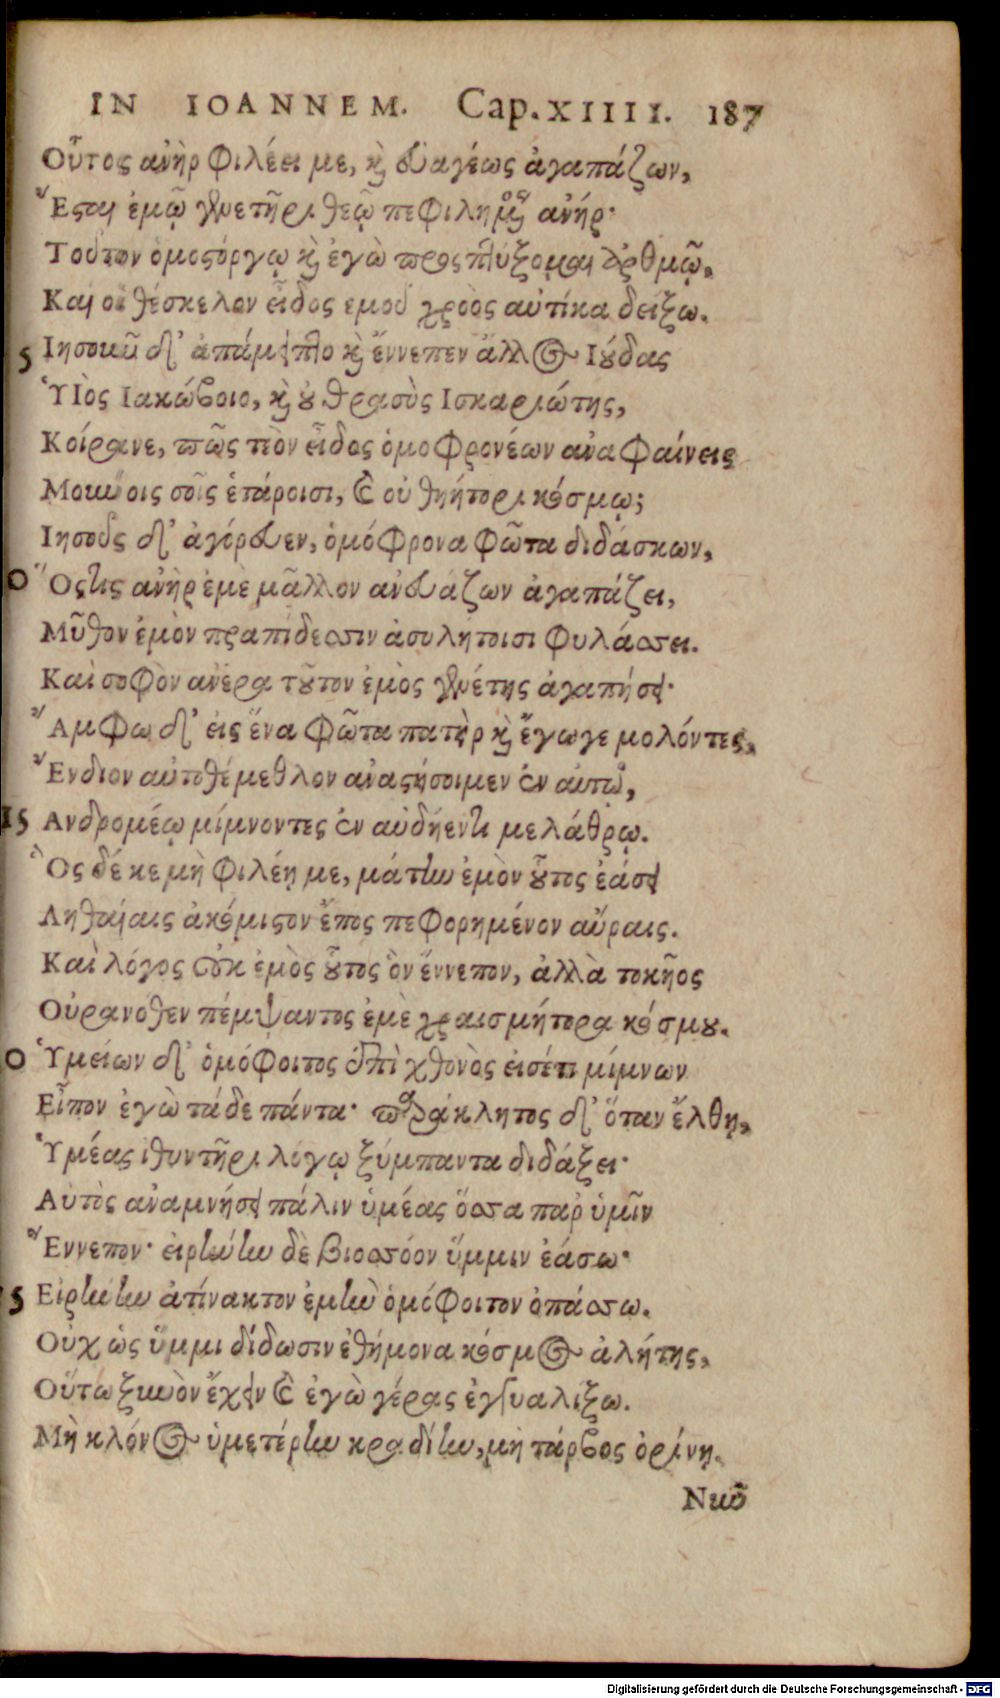 IN IOANNEM. Cap. XIIII. 187
Οὗτος ἀνὴρ φιλέει με, καὶ εὐαγέως ἀγαπάζων,
Ἔσται ἐμῷ γενετῆρι θεῷ πεφιλημένος ἀνήρ·
Τοῦτον ὁμοστόργῳ καὶ ἐγὼ προσπτύξομαι ἀρθμῷ.
Καί οἱ θέσκελον εἶδος ἐμοῦ χροὸς αὐτίκα δείξω.
5 Ἰησοῦν δ' ἀπάμειπτο καὶ ἔννεπεν ἄλλος Ἰούδας
Υἱὸς Ἰακώβοιο, καὶ οὐ θρασὺς Ἰσκαριώτης,
Κοίρανε, πῶς τεὸν εἶδος ὁμοφρονέων ἀναφαίνεις
Μούνοις σοῖς ἑτάροισι, καὶ οὐ θηήτορι κόσμῳ;
Ἰησοῦς δ' ἀγόρευεν, ὁμόφρονα φῶτα διδάσκων,
0 Ὅστις ἀνὴρ ἐμὲ μᾶλλον ἀνευάζων ἀγαπάζει,
Μῦθον ἐμὸν πραπίδεσσιν ἀσυλήτοισι φυλάσσει.
Καὶ σοφὸν ἀνέρα τοῦτον ἐμὸς γενέτης ἀγαπήσει·
Ἄμφω δ' εἰς ἕνα φῶτα πατὴρ καὶ ἔγωγε μολόντες,
Ἔνδιον αὐτοθέμεθλον ἀναστήσοιμεν ἐν αὐτῷ,
15 Ἀνδρομέῳ μίμνοντες ἐν αὐδήεντι μελάθρῳ.
Ὃς δέ κε μὴ φιλέῃ με, μάτην ἐμὸν οὗτος ἐάσει
Ληθαίαις ἀκόμιστον ἔπος πεφορημένον αὔραις.
Καὶ λόγος οὐκ ἐμὸς οὗτος ὃν ἔννεπον, ἀλλὰ τοκῆος
Οὐρανόθεν πέμψαντος ἐμὲ χραισμήτορα κόσμου.
0 Ὑμείων δ' ὁμόφοιτος ἐπὶ χθονὸς εἰσέτι μίμνων
Εἶπον ἐγὼ τάδε πάντα· παράκλητος δ' ὅταν ἔλθῃ,
Ὑμέας ἰθυντῆρι λόγῳ ξύμπαντα διδάξει·
Αὐτὸς ἀναμνήσει πάλιν ὑμέας ὅσσα παρ' ὑμῖν
Ἔννεπον· εἰρήνην δὲ βιοσσόον ὔμμιν ἐάσω·
5 Εἰρήνην ἀτίνακτον ἐμὴν ὁμόφοιτον ὀπάσσω.
Οὐχ ὡς ὔμμι δίδωσιν ἐθήμονα κόσμος ἀλήτης,
Οὕτω ξυνὸν ἔχειν καὶ ἐγὼ γέρας ἐγγυαλίξω.
Μὴ κλόνος ὑμετέρην κραδίην, μὴ τάρβος ὀρίνῃ.
Νῦν
Digitalisierung gefördert durch die Deutsche Forschungsgemeinschaft - DFG